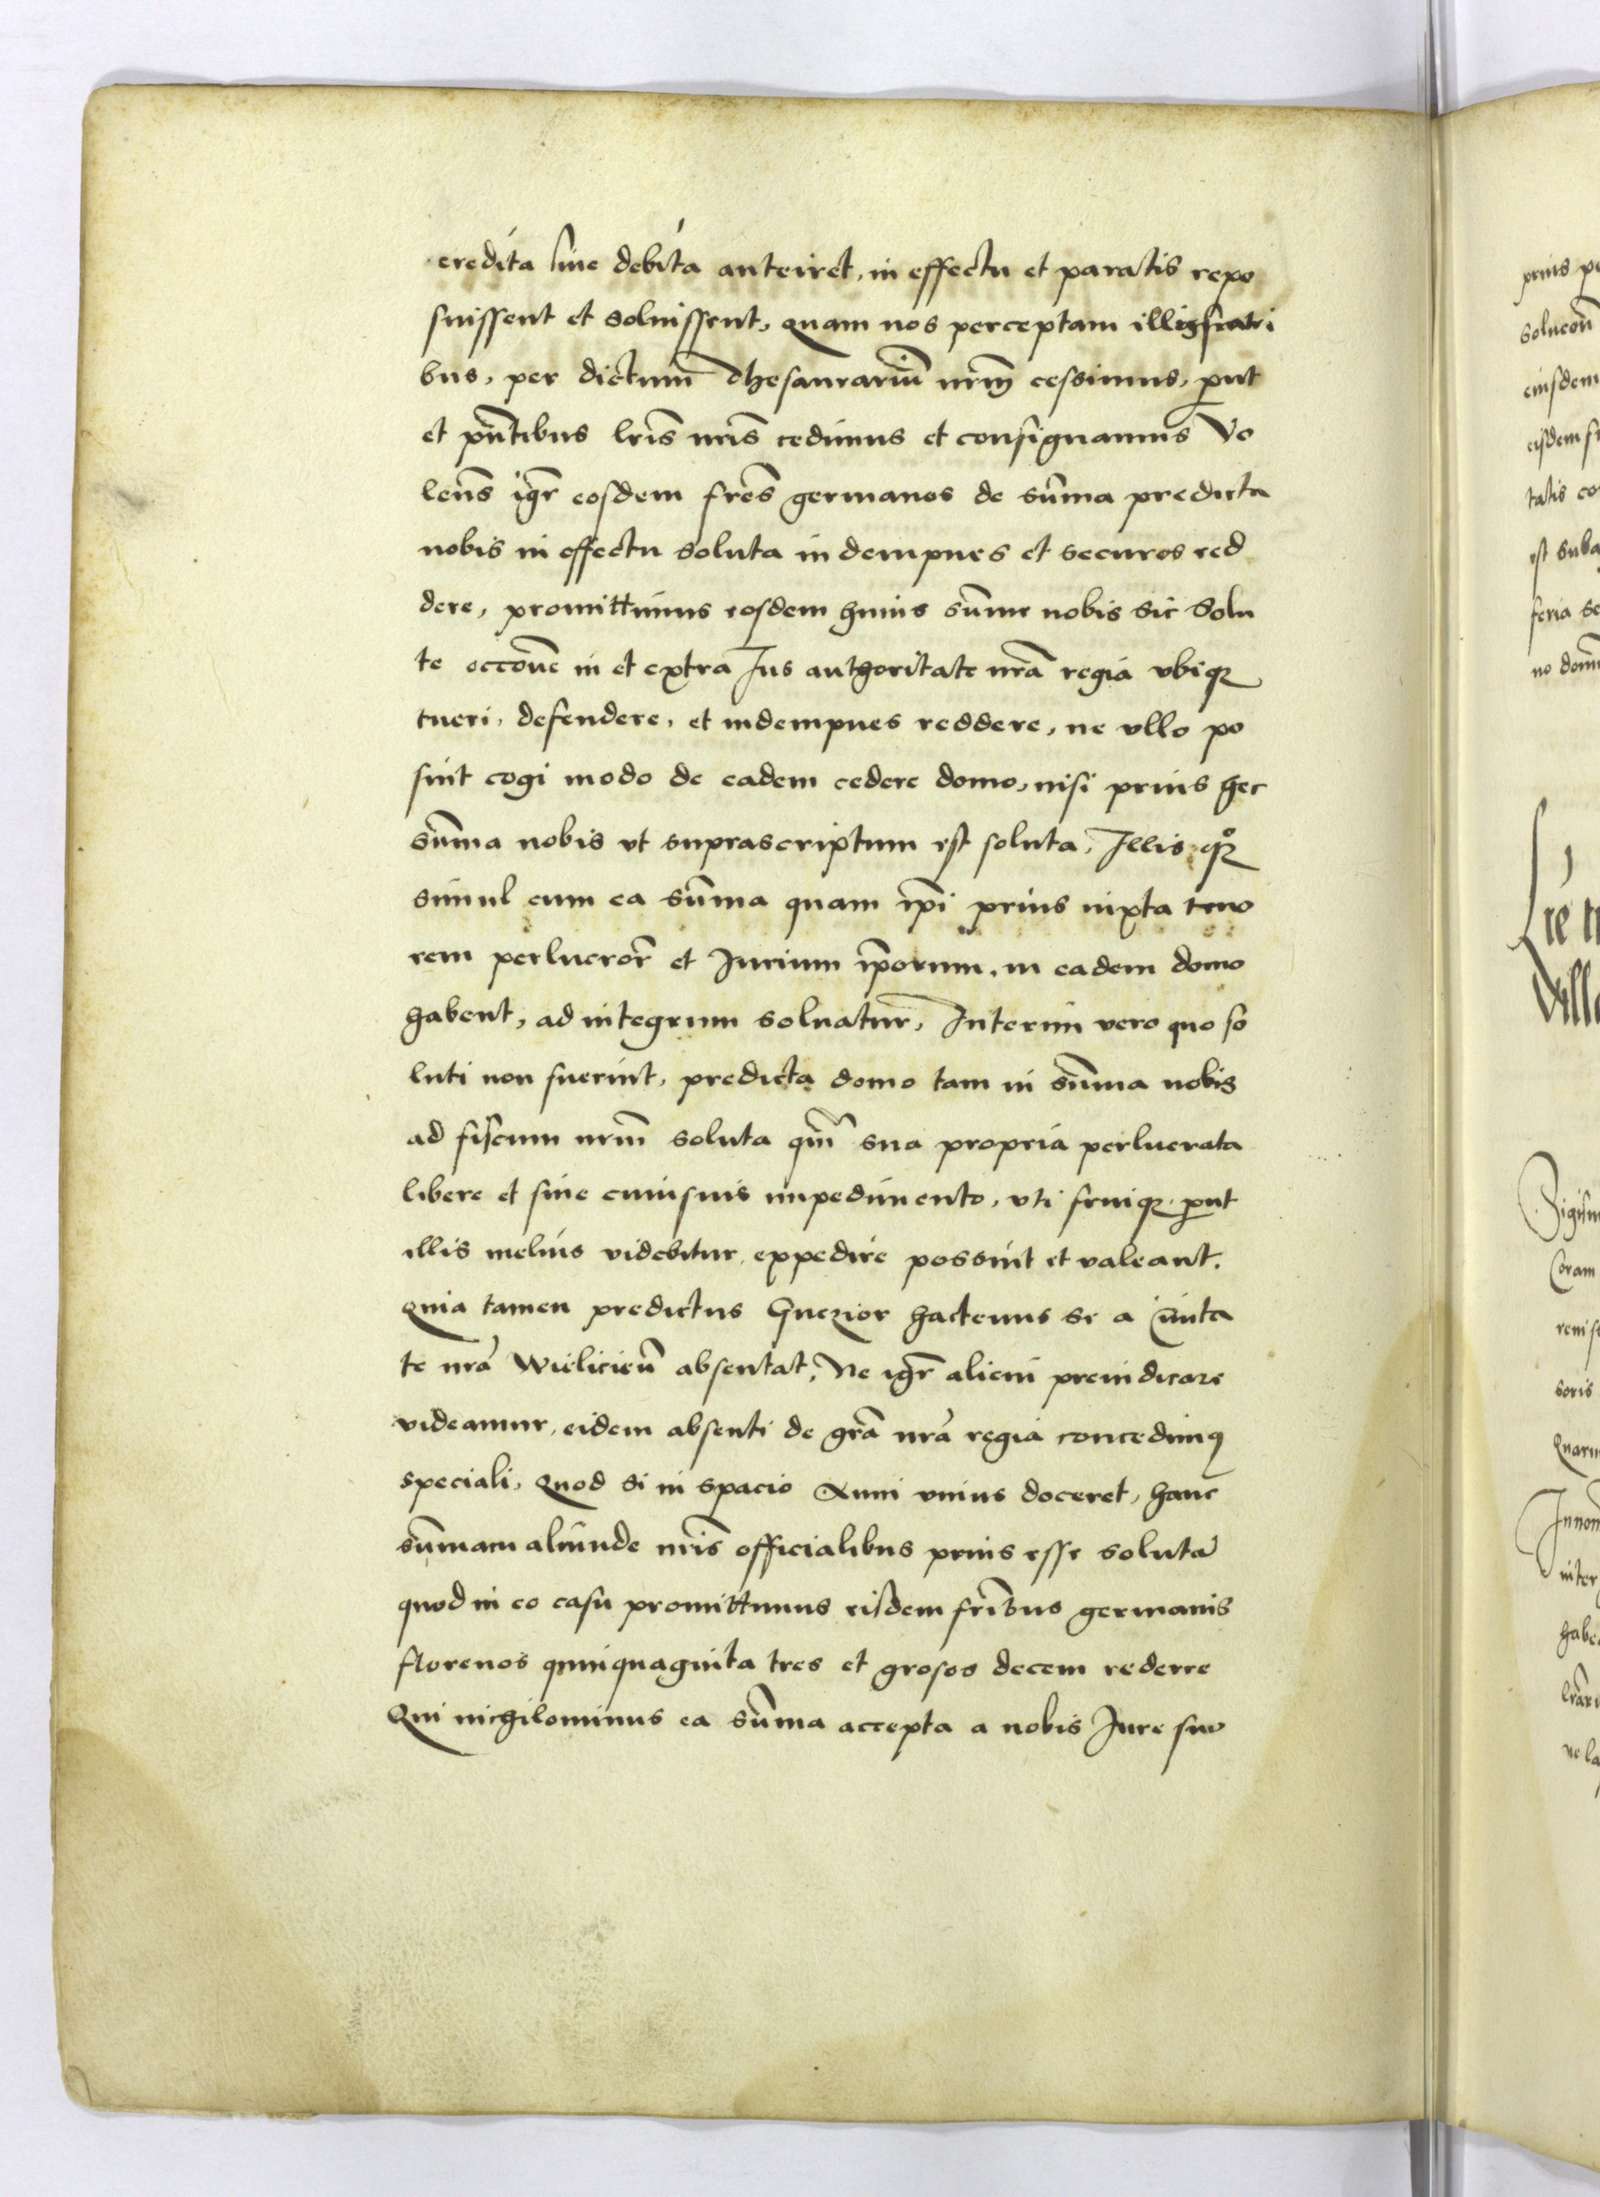 credita siue debita anteiret, in effectu et paratis repo
suissent et soluissent, quam nos perceptam illis fratri
bus, per dictum Thesaurariū nrm̄ cessimus, ꝓut
et pn̄tibus lr̄is nr̄is cedimus et consignamus Vo
len̄s igr̄ eosdem fr̄es germanos de sum̄a predicta
nobis in effectu soluta indempnes et securos red
dere, promittimus eosdem huius sum̄e nobis sic solu
te occōne in et extra Jus authoritate nr̄a regia vbiqȝ
tueri, defendere, et indempnes reddere, ne vllo po
sint cogi modo de eadem cedere domo, nisi prius hec
sum̄a nobis vt suprascriptum est soluta, Illis
simul cum ea sum̄a quam ip̄i prius iuxta teno
rem perlucror̄ et Jurium ip̄orum, in eadem domo
habent, ad integrum soluatur, Interim vero quo so
luti non fuerint, predicta domo tam in sum̄a nobis
ad fiscum nrm̄ soluta qm̄ sua propria perlucrata
libere et sine cuiusuis impedimento, vti fruiqȝ ꝓut
illis melius videbitur expedire possint et valeant.
Quia tamen predictus Gnezior hactenus se a Ciuita
te nr̄a Wieliciēn absentat, Ne igr̄ alicui preiudicare
videamur, eidem absenti de gr̄a nr̄a regia concedimꝯ
speciali, Quod si in spacio Anni vnius doceret, hanc
sum̄am aliunde nr̄is officialibus prius esse solutā
quod in eo casu promittimus eisdem fr̄ibus germanis
florenos quinquaginta tres et grosos decem reddere
Qui nichilominus ea sum̄a accepta a nobis Jure suo